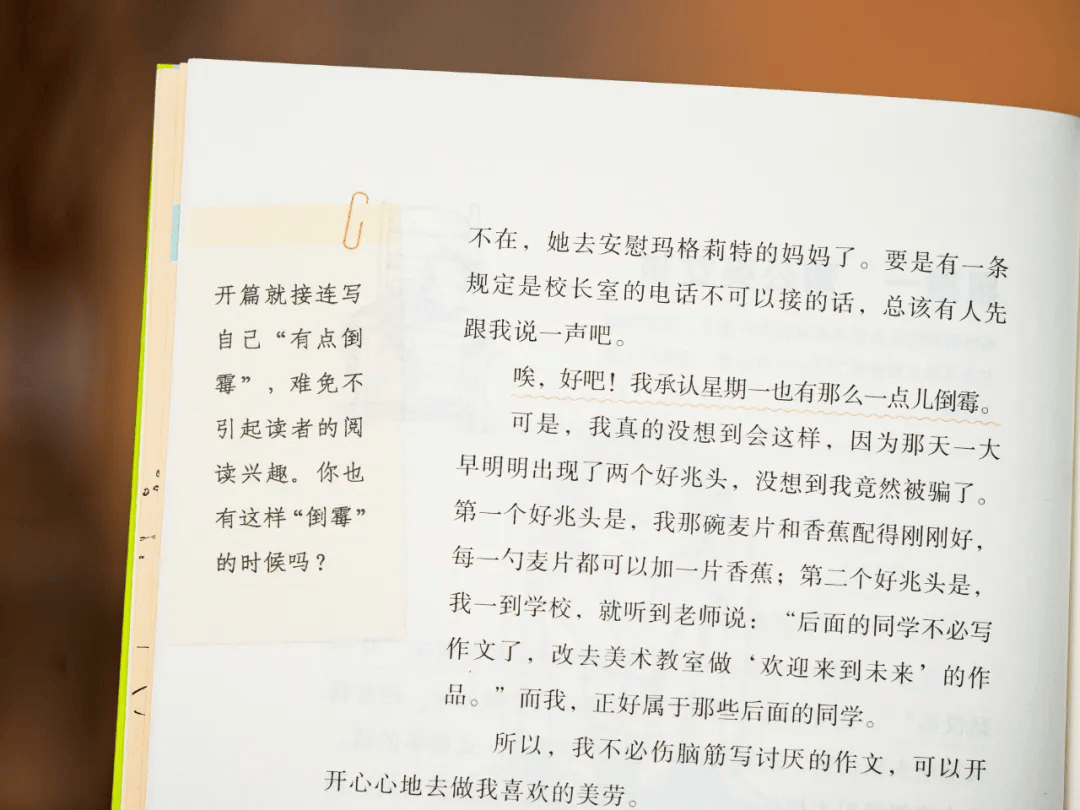 开篇就接连写
自己“有点倒
霉”，难免不
引起读者的阅
读兴趣。你也
有这样“倒霉”
的时候吗？
不在，她去安慰玛格莉特的妈妈了。要是有一条
规定是校长室的电话不可以接的话，总该有人先
跟我说一声吧。
唉，好吧！我承认星期一也有那么一点儿倒霉。
可是，我真的没想到会这样，因为那天一大
早明明出现了两个好兆头，没想到我竟然被骗了。
第一个好兆头是，我那碗麦片和香蕉配得刚刚好，
每一勺麦片都可以加一片香蕉；第二个好兆头是，
我一到学校，就听到老师说：“后面的同学不必写
作文了，改去美术教室做‘欢迎来到未来’的作
品。”而我，正好属于那些后面的同学。
所以，我不必伤脑筋写讨厌的作文，可以开
开心心地去做我喜欢的美劳。